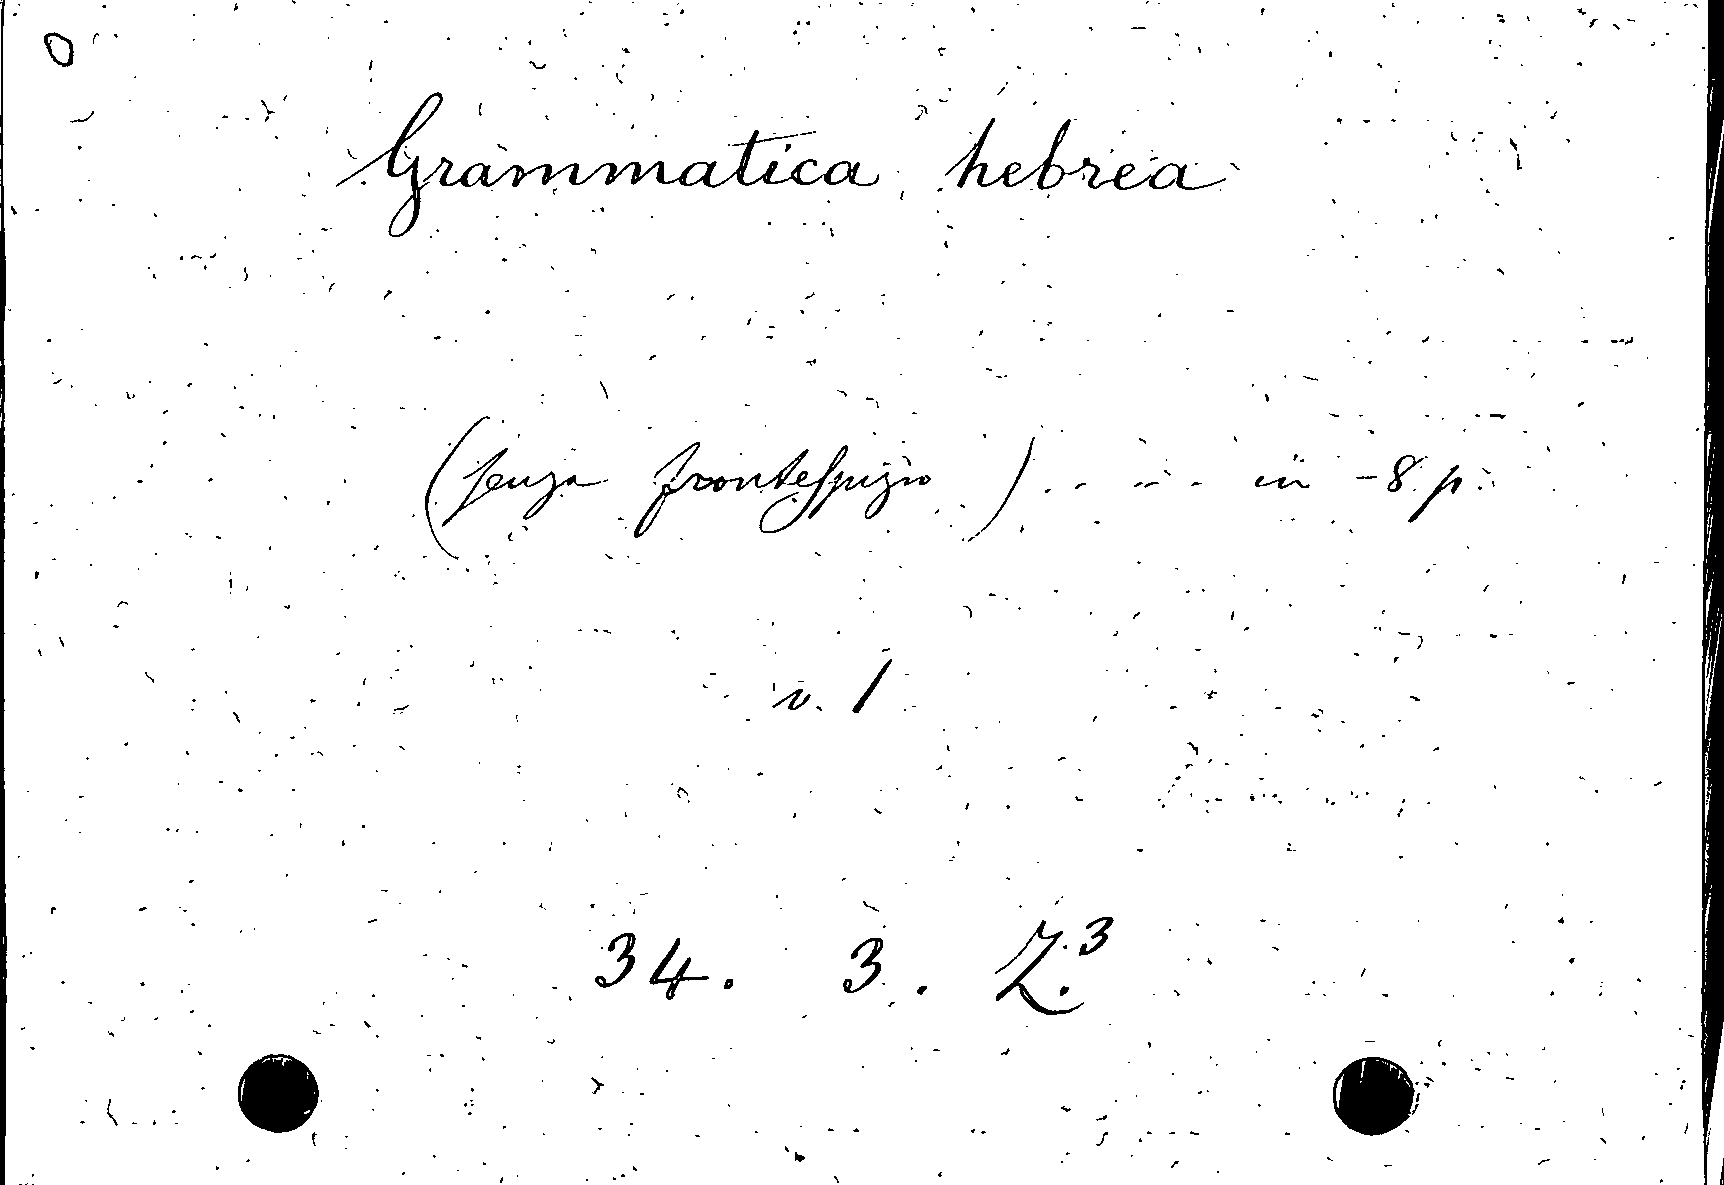 Grammatica hebrea
(senza frontespizio) . . . . . in -8 p.
v. 1
34. 3. Z.³